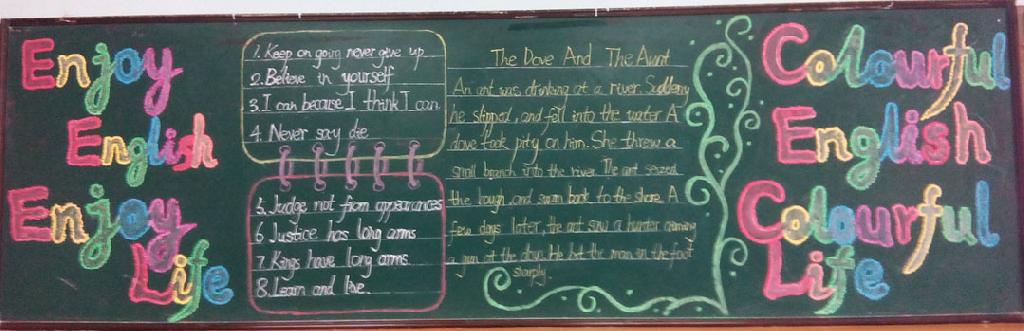 Enjoy
English
Enjoy
Life
1. Keep on going never give up
2. Believe in yourself
3. I can because I think I can
4. Never say die
5. Judge not from appearances
6 Justice has long arms
7. Kings have long arms.
8. Learn and live.
The Dove And The Aunt
An ant was drinking at a river. Suddenly
he slipped, and fell into the water A
dove took pity on him. She threw a
small branch into the river. The ant seized
the bough, and swam back to the shore. A
few days later, the ant saw a hunter aiming
a gun at the dove. He bit the man in the foot
sharply.
Colourful
English
Colourful
Life